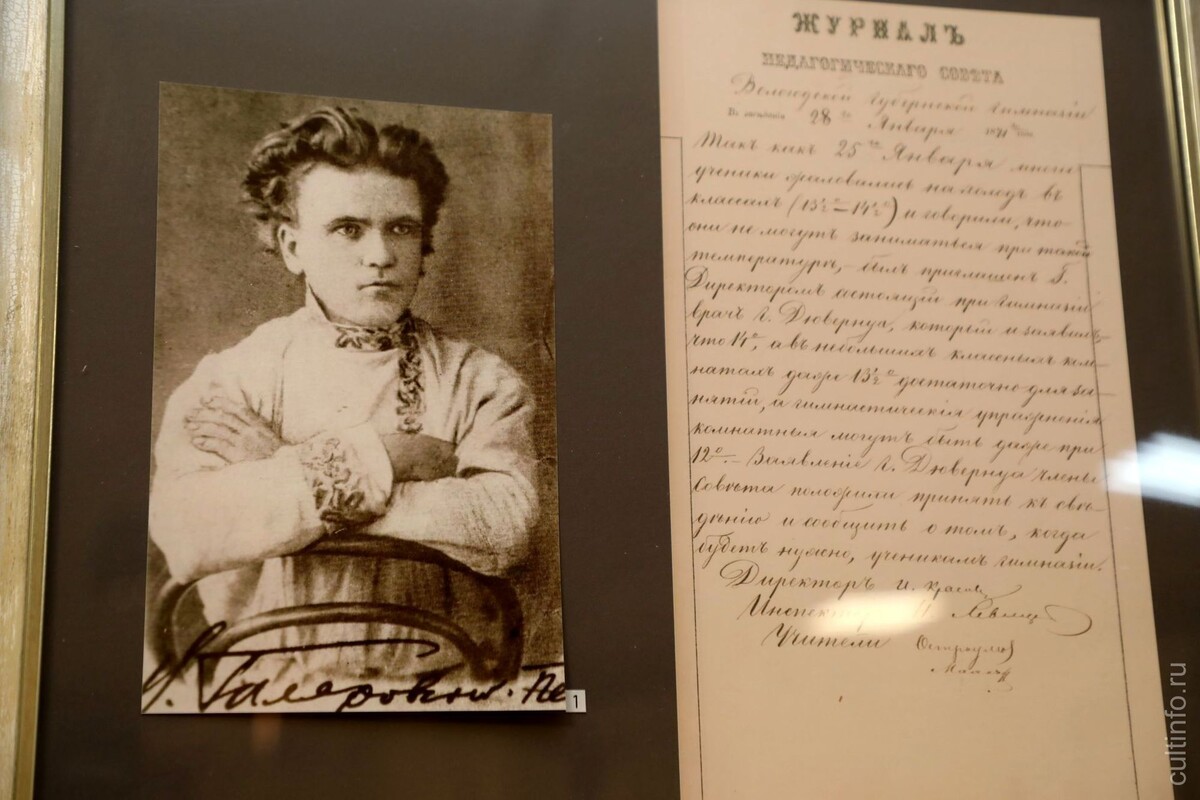 ЖУРНАЛЪ
ПЕДАГОГИЧЕСКАГО СОВѢТА
Вологодской Губернской Гимназіи
Въ засѣданіи 28го Января 1871 года
Такъ какъ 25го Января многіе
ученики жаловались на холодъ въ
классахъ (13½ – 14½°) и говорили, что
они не могутъ заниматься при такой
температурѣ, – былъ приглашенъ Г.
Директоромъ состоящій при гимназіи
врачъ Г. Дювернуа, который и заявилъ,
что 14°, а въ небольшихъ классныхъ ком-
натахъ даже 13½° достаточно для за-
нятій, а гимнастическія упражненія
комнатныя могутъ быть даже при
12°. – Заявленіе Г. Дювернуа члены
Совѣта положили принять къ свѣ-
дѣнію и сообщить о томъ, когда
будетъ нужно, ученикамъ гимназіи.
Директоръ И. Красовъ
Инспекторъ
Учители Остроумовъ
Гиляровскій.
1
cultinfo.ru